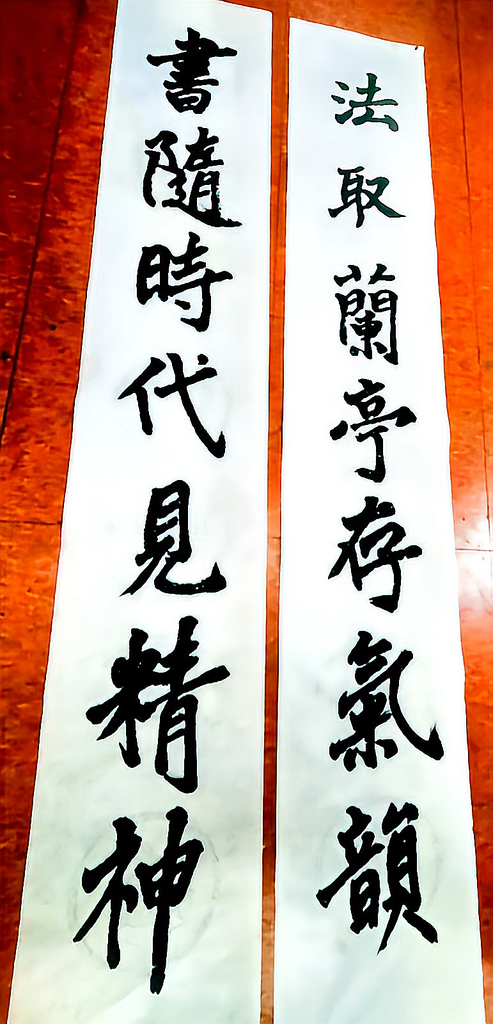 法取蘭亭存氣韻
書隨時代見精神